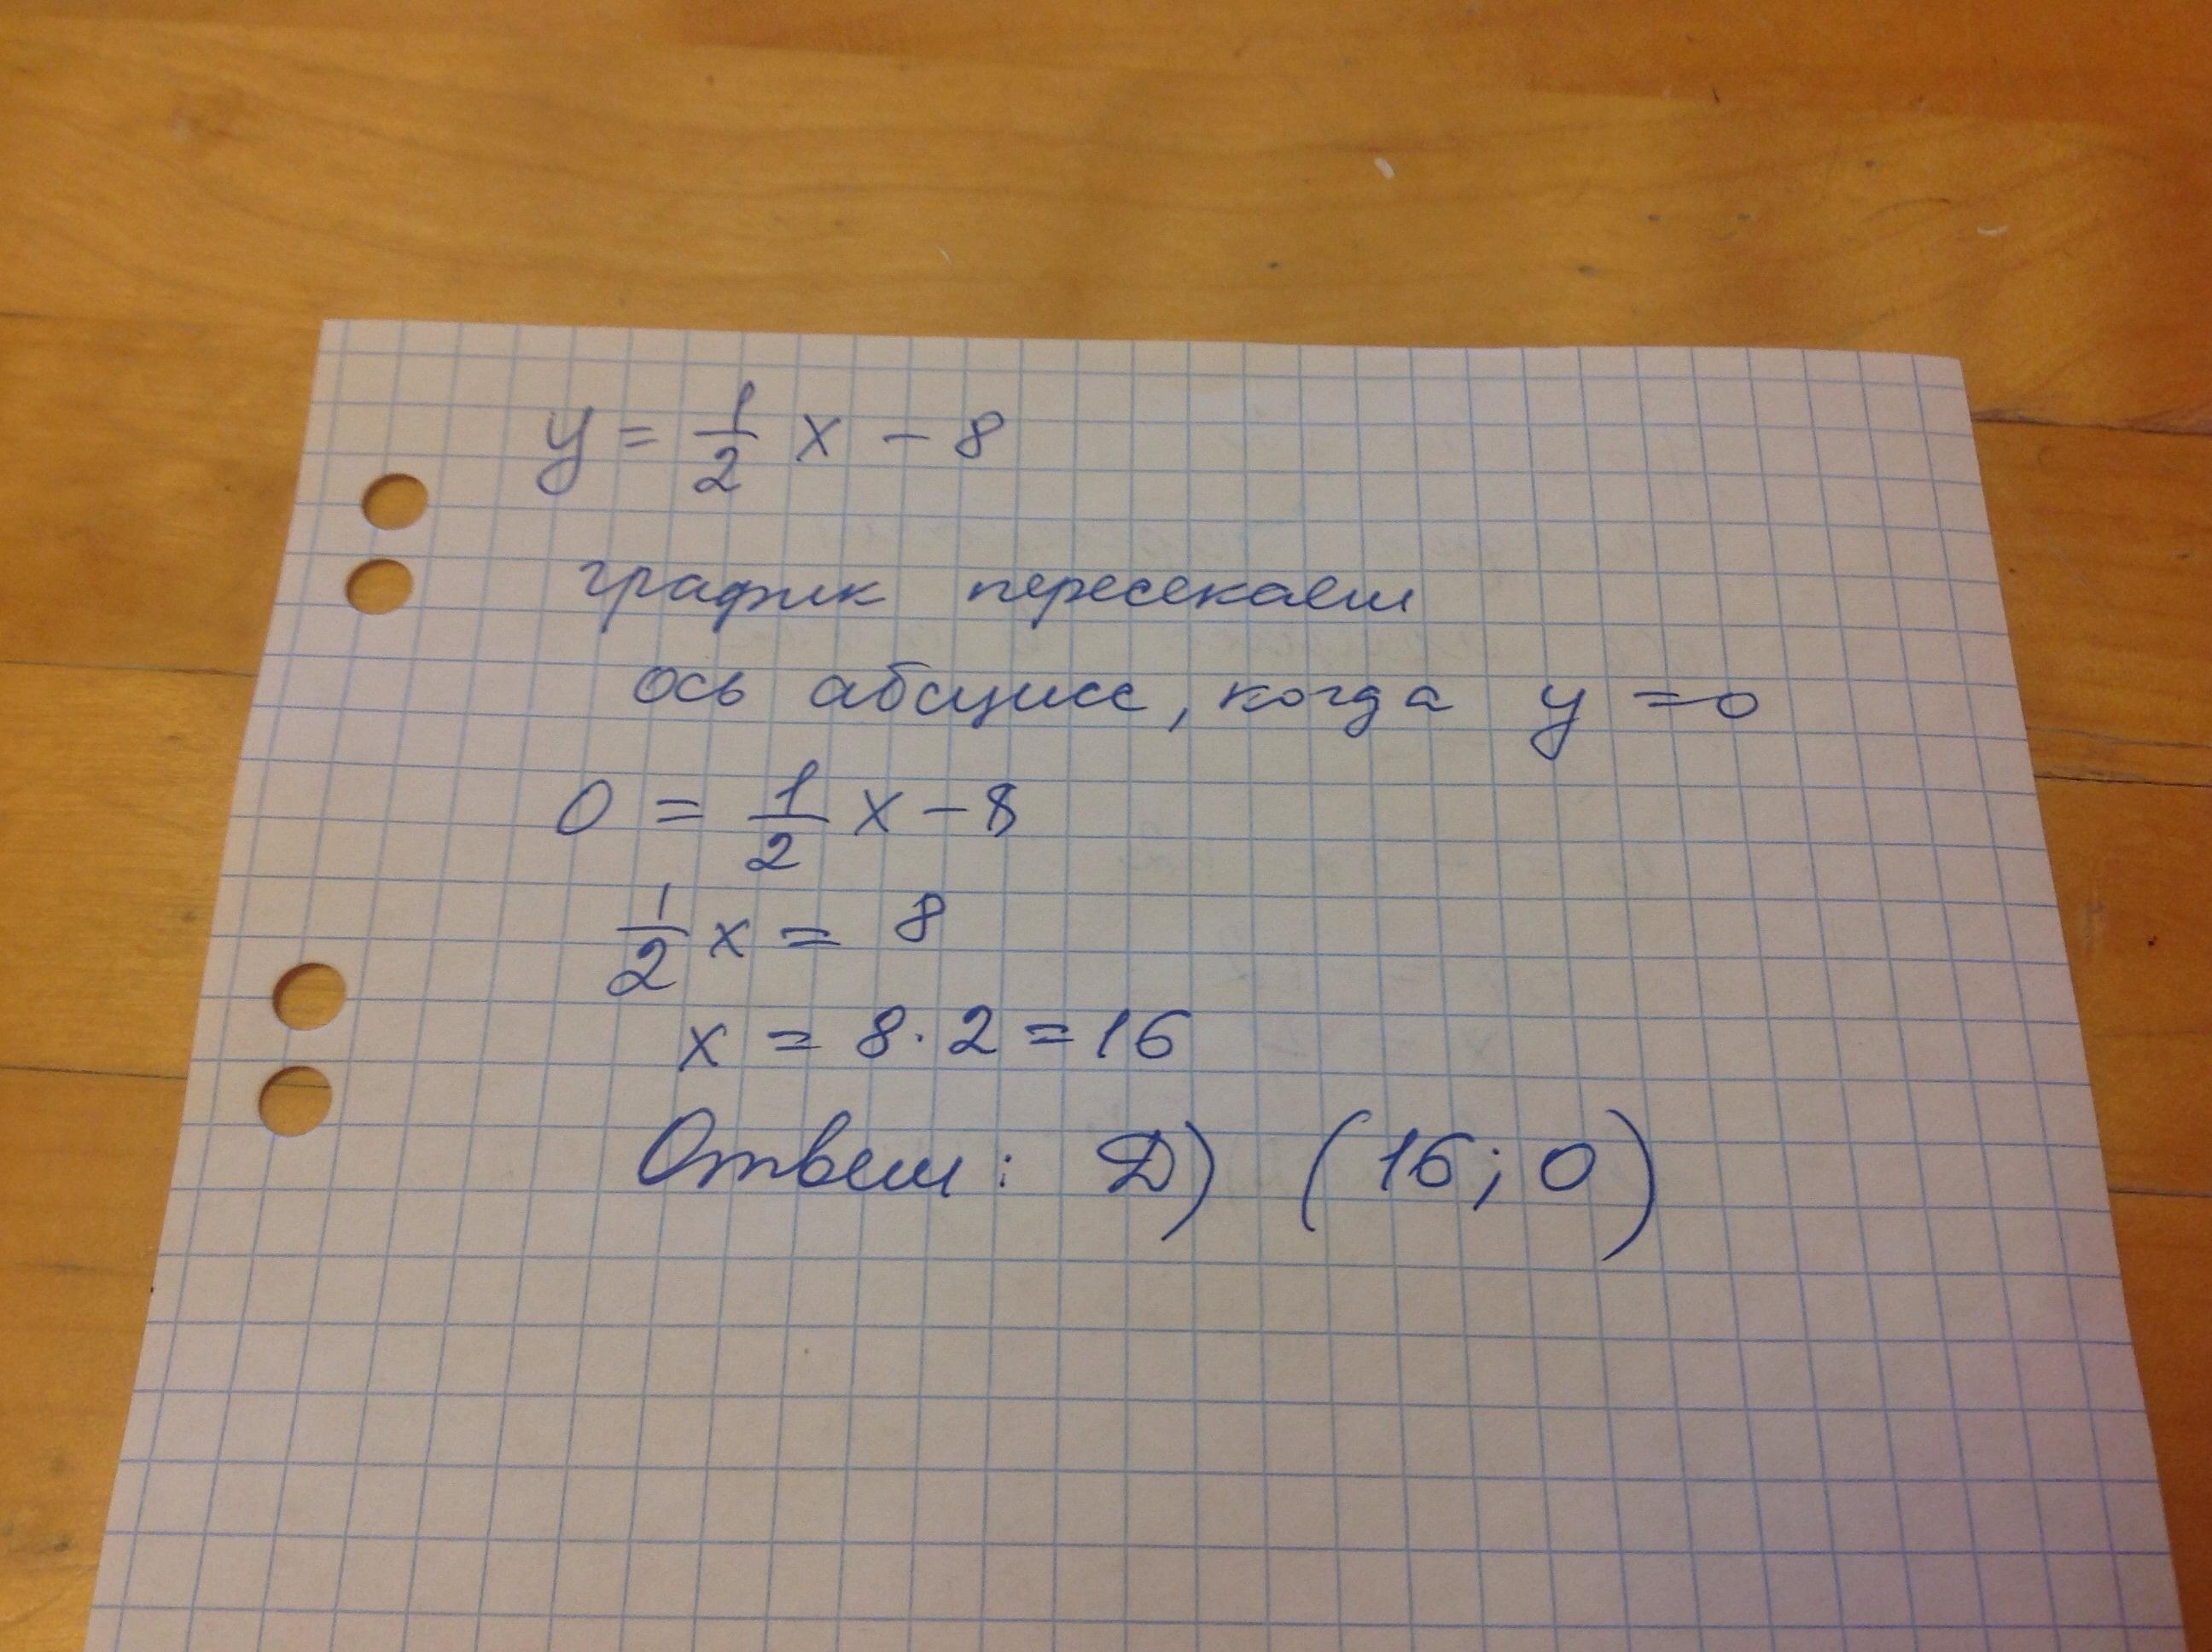 y = 1/2 x - 8
график пересекает
ось абсцисс, когда y = 0
0 = 1/2 x - 8
1/2 x = 8
x = 8 · 2 = 16
Ответ: Д) (16; 0)